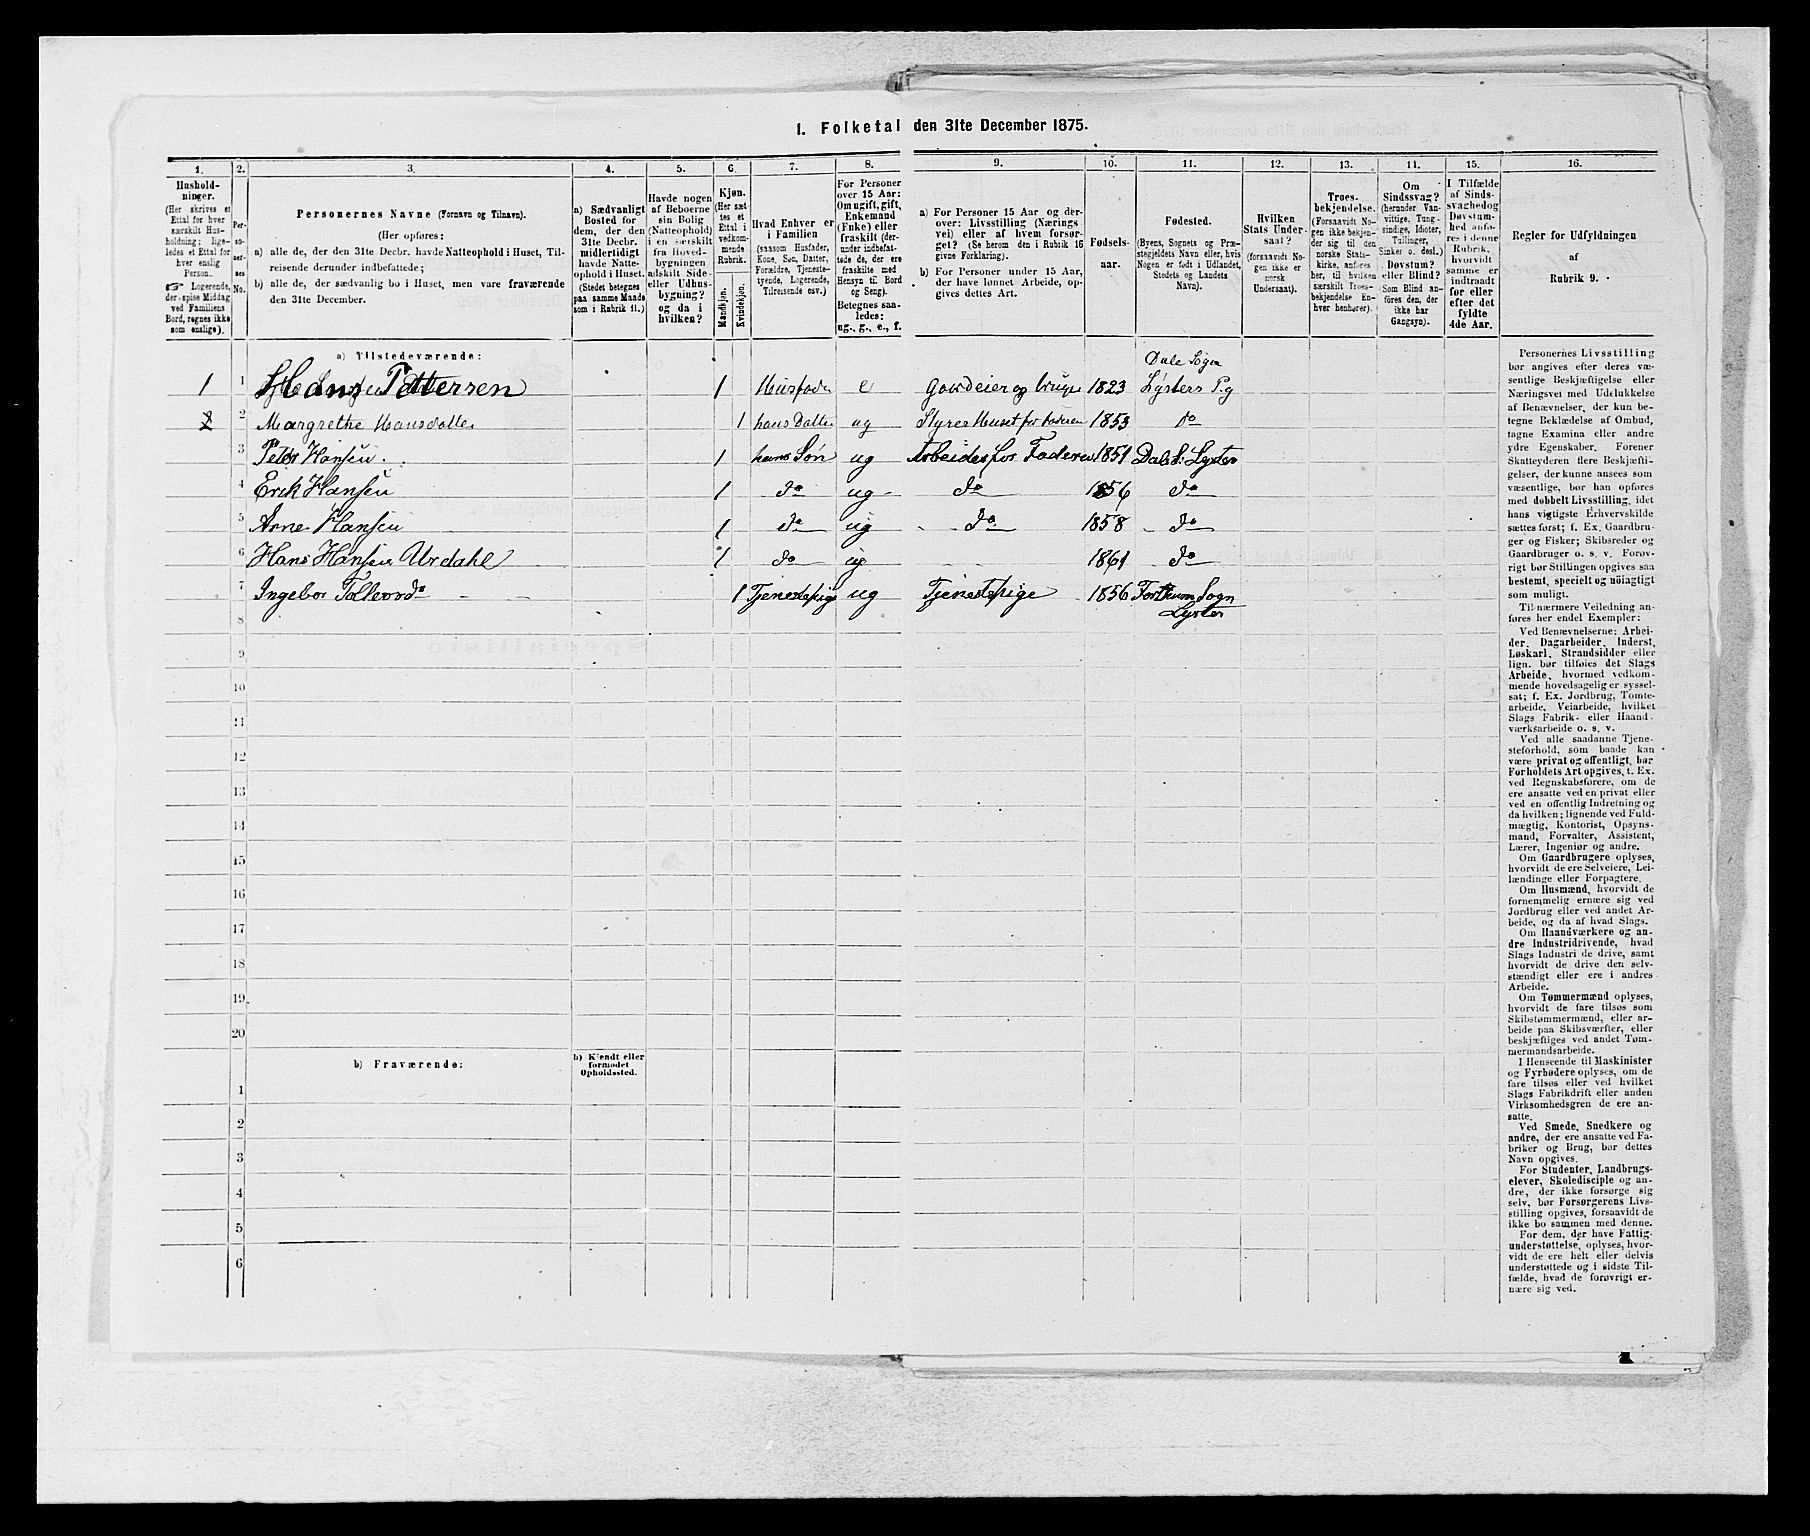 1. Folketal den 31te December 1875.
1. 2. 3. 4. 5. 6. 7. 8. 9. 10. 11. 12. 13. 14. 15. 16.
Hushold-
ninger.
(Her skrives et
Ettal for hver
særskilt Hus-
holdning; lige-
ledes et Ettal for
hver enslig
Person.
☞ Logerende,
der spise Middag
ved Familiens
Bord, regnes ikke
som enslige).
Per-
so-
ner-
nes
No.
Personernes Navne (Fornavn og Tilnavn).
(Her opføres:
a) alle de, der den 31te Decbr. havde Natteophold i Huset, Til-
reisende derunder indbefattede;
b) alle de, der sædvanlig bo i Huset, men vare fraværende
den 31te December.
a) Sædvanligt
Bosted for
dem, der den
31te Decbr.
midlertidigt
havde Natte-
ophold i Huset.
(Stedet betegnes
paa samme Maade
som i Rubrik 11.)
Havde nogen
af Beboerne
sin Bolig
(Natteophold)
i en særskilt
fra Hoved-
bygningen
adskilt Side-
eller Udhus-
bygning?
og da i
hvilken?
Kjøn.
(Her sæt-
tes et
Ettal i
vedkom-
mende
Rubrik.
Mandkjøn.
Kvindekjøn.
Hvad Enhver er
i Familien
(saasom Husfader,
Kone, Søn, Datter,
Forældre, Tjeneste-
tyende, Logerende,
Tilreisende osv.)
For Personer
over 15 Aar:
Om ugift, gift,
Enkemand
(Enke) eller
fraskilt (der-
under indbefat-
tede de, der ere
fraskilte med
Hensyn til Bord
og Seng).
Betegnes saa-
ledes:
ug., g., e., f.
a) For Personer 15 Aar og der-
over: Livsstilling (Nærings-
vei) eller af hvem forsør-
get? (Se herom den i Rubrik 16
givne Forklaring).
b) For Personer under 15 Aar,
der have lønnet Arbeide, op-
gives dettes Art.
Fødsels-
aar.
Fødested.
(Byens, Sognets og Præ-
stegjeldets Navn eller, hvis
Nogen er født i Udlandet,
Stedets og Landets
Navn).
Hvilken
Stats Under-
saat?
(forsaavidt No-
gen ikke er
norsk
Undersaat).
Troes-
bekjendelse.
(Forsaavidt No-
gen ikke bekjen-
der sig til den
norske Stats-
kirke, anføres
her, til hvilken
særskilt Troes-
bekjendelse En-
hver henhører).
Om
Sindssvag?
(herunder Van-
vittige, Tung-
sindige, Idioter,
Tullinger,
Sinker o. desl.)
Døvstum?
eller Blind?
(Som Blind an-
føres den, der
ikke har
Gangsyn).
I Tilfælde
af Sinds-
svaghed og
Døvstum-
hed anfø-
res i denne
Rubrik,
hvorvidt
samme er
indtraadt
før eller
efter det
fyldte
4de Aar.
Regler for Udfyldningen
af
Rubrik 9.
a) Tilstedeværende:
Dale Sogn
1 1 Hans Pettersen 1 Husfader e Gaardeier og bruger 1823 Lysters P.g
2 2 Margrethe Hansdatter 1 hans Datter ug Styrer Huset for faderen 1853 do
3 Peter Hansen. 1 hans Søn ug Arbeides for Faderen 1851 Dale S. Lyster
4 Erik Hansen 1 do ug do 1856 do
5 Arne Hansen 1 do ug do 1858 do
6 Hans Hansen Urdahl 1 do ug 1861 do
7 Ingebor 1 Tjenestepige ug Tjenestepige 1856 Forthum Sogn
Lyster
8
9
10
11
12
13
14
15
16
17
18
19
20
b) Fraværende:
b) Kjendt eller
formodet
Opholdssted.
1
2
3
4
5
6
Personernes Livsstilling
bør angives efter deres væ-
sentlige Beskjæftigelse eller
Næringsvei med Udelukkelse
af Benævnelser, der kun be-
tegne Beklædelse af Ombud,
tagne Examina eller andre
ydre Egenskaber. Forener
Skatteyderen flere Beskjæfti-
gelser, der kunne ansees som
væsentlige, bør han opføres
med dobbelt Livsstilling, idet
hans vigtigste Erhvervskilde
sættes først; f. Ex. Gaardbru-
ger og Fisker; Skibsreder og
Gaardbruger o. s. v. Forøv-
rigt bør Stillingen opgives saa
bestemt, specielt og nøiagtigt
som muligt.
Til nærmere Veiledning an-
føres her endel Exempler:
Ved Benævnelserne: Arbei-
der, Dagarbeider, Inderst,
Løskarl, Strandsidder eller
lign. bør tilføies det Slags
Arbeide, hvormed vedkom-
mende hovedsagelig er syssel-
sat; f. Ex. Jordbrug, Tomte-
arbeide, Veiarbeide, hvilket
Slags Fabrik- eller Haand-
værksarbeide o. s. v.
Ved alle saadanne Tjene-
steforhold, som baade kan
være privat og offentligt, bør
Forholdets Art opgives, t. Ex.
ved Regnskabsførere, om de
ere ansatte ved en privat eller
ved en offentlig Indretning og
da hvilken; lignende ved Fuld-
mægtig, Kontorist, Opsyns-
mand, Forvalter, Assistent,
Lærer, Ingeniør og andre.
Om Gaardbrugere oplyses,
hvorvidt de ere Selveiere, Lei-
lændinge eller Forpagtere.
Om Husmænd, hvorvidt de
fornemmelig ernære sig ved
Jordbrug eller ved andet Ar-
beide, og da af hvad Slags.
Om Haandværkere og an-
dre Industridrivende, hvad
Slags Industri de drive, samt
hvorvidt de drive den selv-
stændigt eller ere i andres
Arbeide.
Om Tømmermænd oplyses,
hvorvidt de fare tilsøs som
Skibstømmermænd, eller ar-
beide paa Skibsværfter, eller
beskjæftiges ved andet Tøm-
mermandsarbeide.
I Henseende til Maskinister
og Fyrbødere oplyses, om de
fare tilsøs eller ved hvilket
Slags Fabrikdrift eller anden
Virksomhedsgren de ere an-
satte.
Ved Smede, Snedkere og
andre, der ere ansatte ved Fa-
briker og Brug, bør dettes
Navn opgives.
For Studenter, Landbrugs-
elever, Skoledisciple og an-
dre, der ikke forsørge sig
selv, bør Forsørgerens Livs-
stilling opgives, forsaavidt de
ikke bo sammen med denne.
For dem, der have Fattig-
understøttelse, oplyses, hvor-
vidt de ere helt eller delvis
understøttede og i sidste Til-
fælde, hvad de forøvrigt er-
nære sig ved.